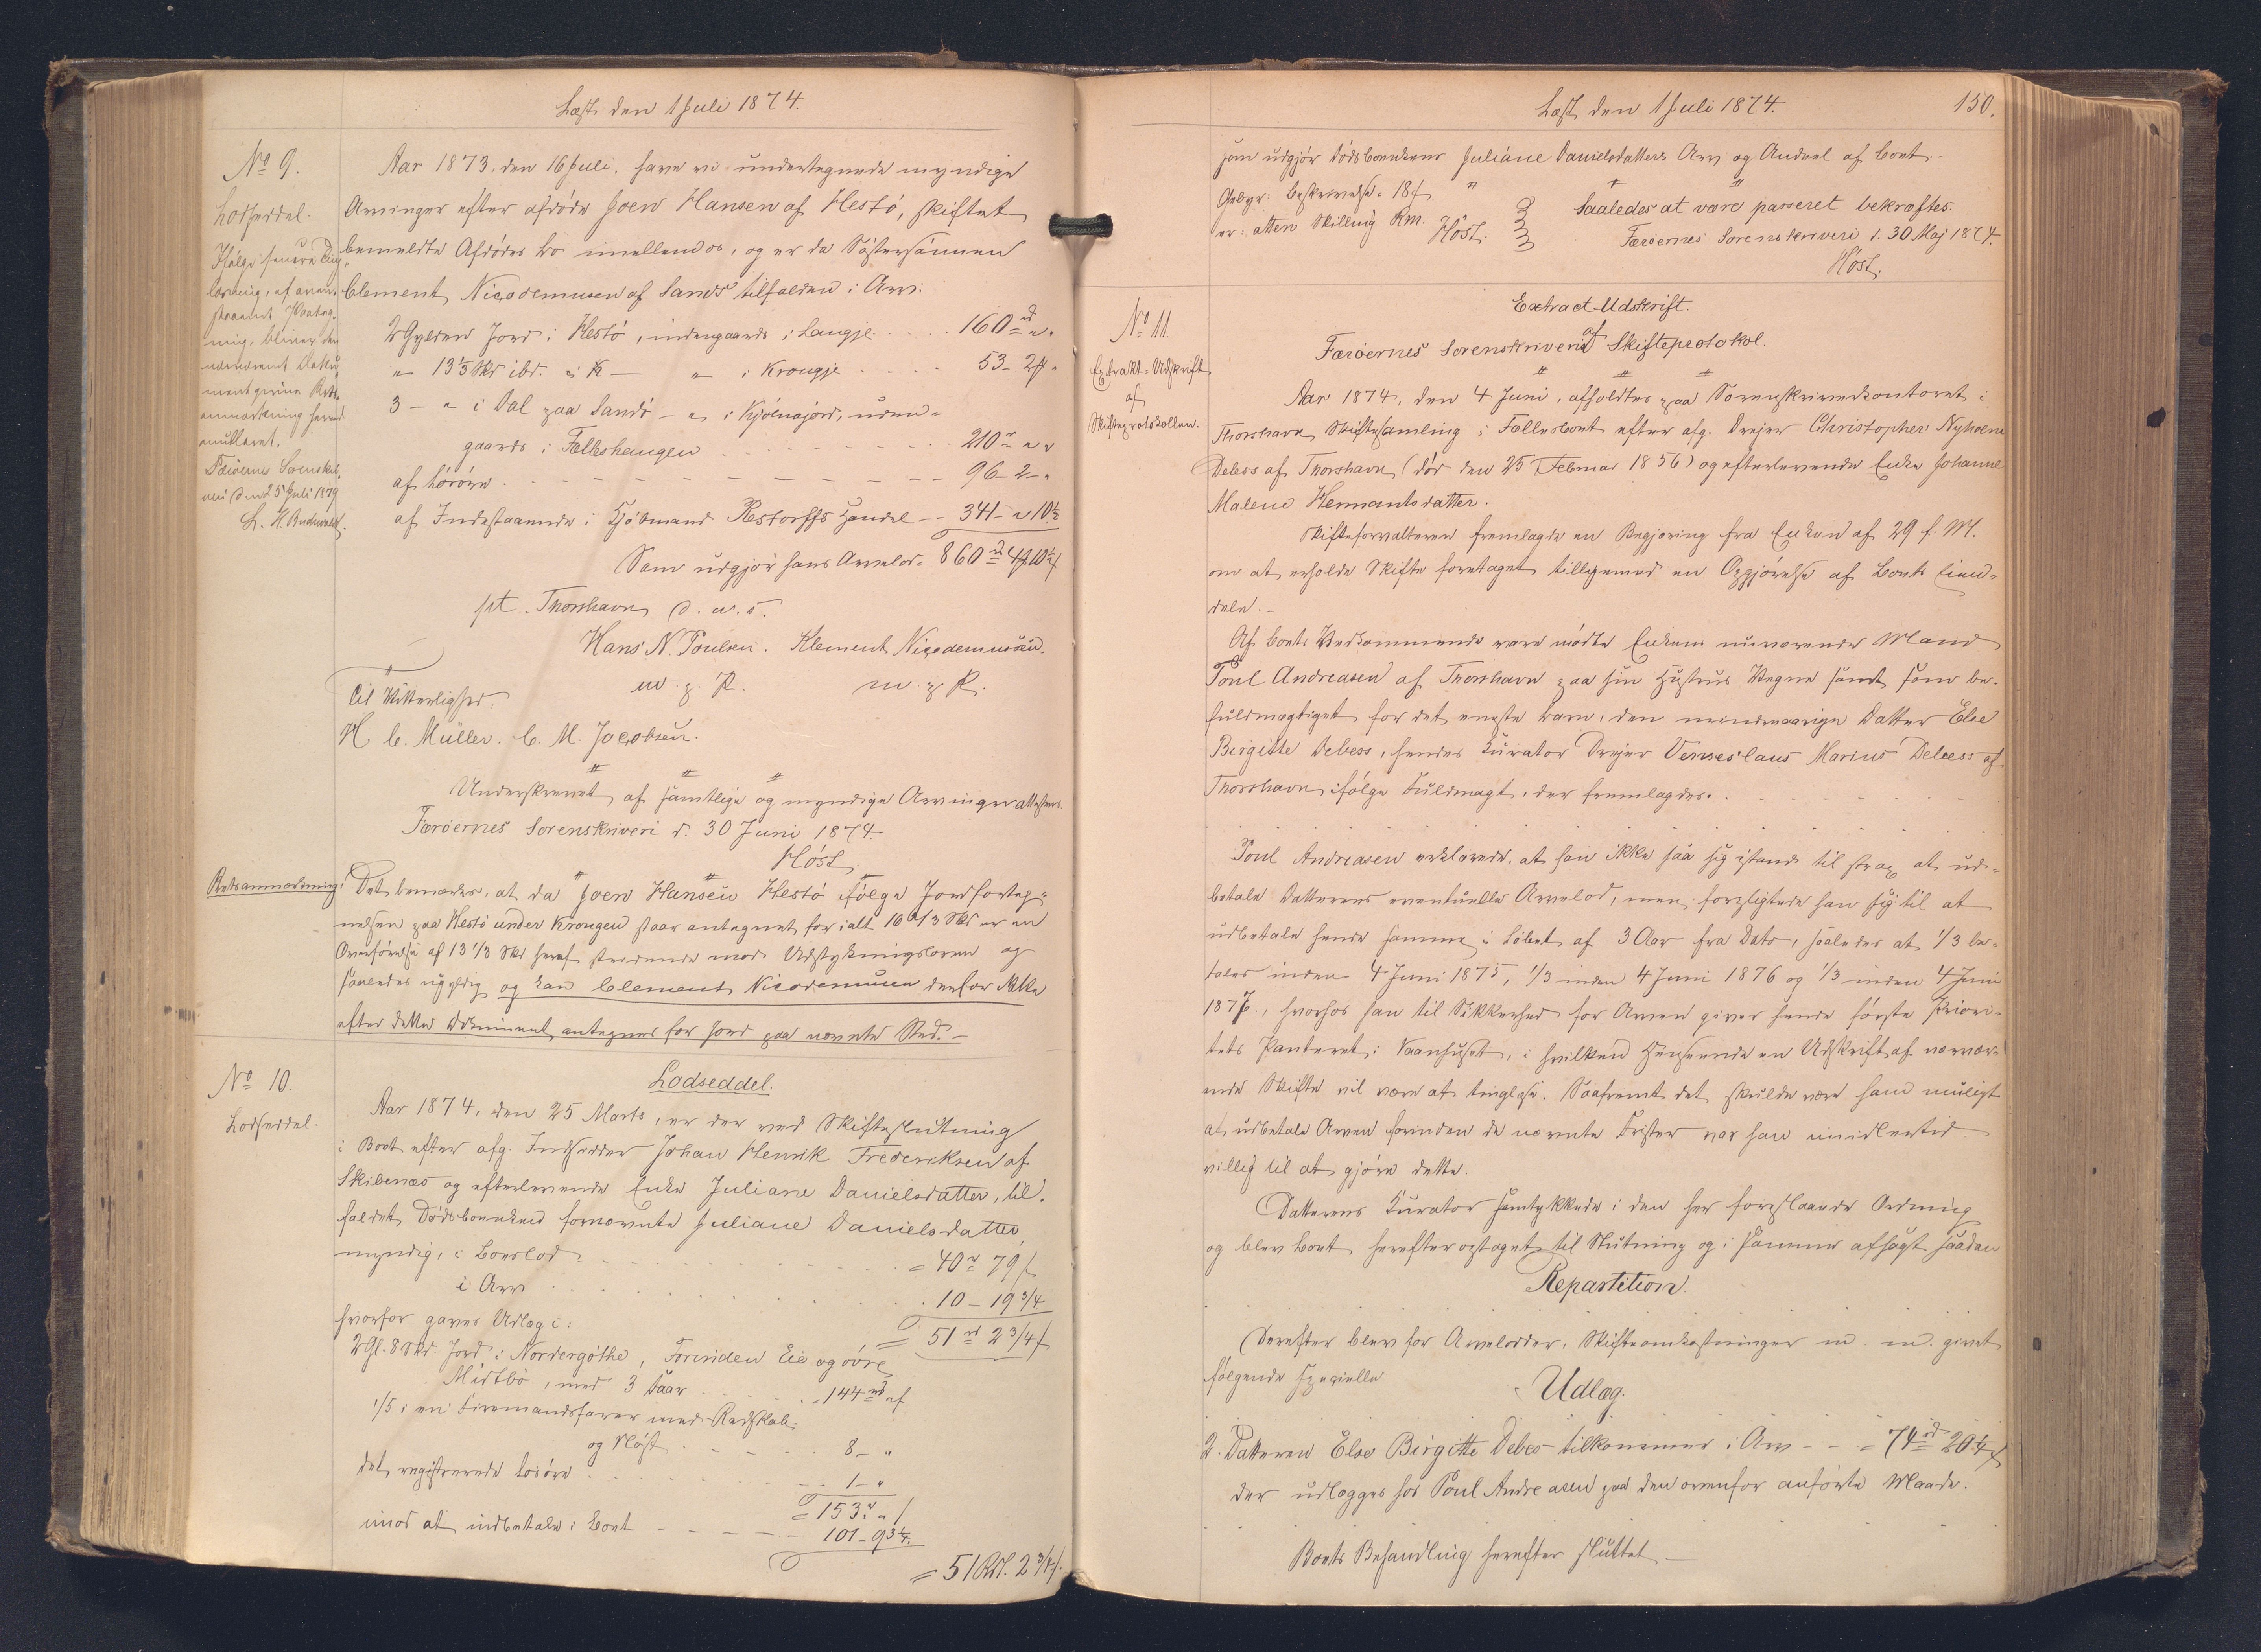 Læst den 1 Juli 1874.
No 9.
Lodseddel.
Ifølge senere Ting-
læsning, af oven-
staaende Paateg-
ning, bliver den
ment givne Rets-
anmærkning herved
annulleret.
Færøernes Sorenskri-
veri den 25 Juli 1879
Aar 1873, den 16 Juli, have vi undertegnede myndige
Arvinger efter afdøde Joen Hansen af Hestø, skiftet
bemeldte Afdødes Bo imellem os, og er da Søstersønnen
Clement Nicodemusen af Sand tilfalden i Arv:
2 Gylden Jord i Hestø, indengaards i Laugje . . . 160 rd " "
" 13⅓ Skd ibd. " i K — " i Krougje . . . . 53 - 2 # "
3 — " i Dal paa Sandø — " i Kjølnajørd, uden-
gaards i Fælleshaugen . . . . . . 210 r " "
af Løsøre . . . . . . . 96 - 2 - "
af Indestaaende i Kjøbmand Restorffs Handel - - 341 - " 10½
Som udgjør hans Arvelod = 860 rd 4 # 10½ ſ
pt. Thorshavn d. u. s.
Hans N. Poulsen. Klement Nicodemusen.
m. p. P. m. p. P.
Til Vitterlighed:
H. C. Müller. C. M. Jacobsen.
Underskrevet af samtlige og myndige Arvinger attesteres
Færøernes Sorenskriveri d. 30 Juni 1874
Høst.
Retsanmærkning: Det bemærkes, at da Joen Hansen Hestø ifølge Jordforteg-
nelsen paa Hestø under Krougen staar antegnet for ialt 16 2/3 Skd er en
Overførelse af 13 1/3 Skd heraf stridende mod Udstykningsloven og
saaledes ugyldig og kan Clement Nicodemusen derfor ikke
efter dette Document antegnes for Jord paa nævnte Sted. —
No 10.
Lodseddel.
Lodseddel.
Aar 1874, den 25 Marts, er der ved Skifteslutning
i Boet efter afg. Indsidder Johan Henrik Frederiksen af
Skibenæs og efterlevende Enke Juliane Danielsdatter, til-
faldet Dødsboenken fornævnte Juliane Danielsdatter,
myndig, i Boeslod . . . . . = 40 r 79 ſ
i Arv . . . . . 10 - 19 3/4
hvorfor gaves Udlæg i: = 51 rd 2 3/4 ſ
2 Gl. 8 Skd Jord i Nordergøthe, Forinden Eie og øvre
Midtbø, med 3 Faar . . . . 144 rd " ſ
1/5 i en Firemandsfarer med Redskab-
og Nøst . . . . . 8 - "
det registrerede Løsøre . . . . . 1 - "
= 153 r " ſ
imod at indbetale i Boet - - - - 101 - 93¼
= 51 Rdl. 2 3/4 ſ.
Læst den 1 Juli 1874.
150.
som udgjør Dødsboenkens Juliane Danielsdatters Arv og Andeel af Boet. -
Gebyr: Beskrivelse = 18 ſ
er: atten Skilling Rm.
Høst.
Saaledes at være passeret bekræftes.
Færøernes Sorenskriveri d. 30 Maj 1874.
Høst.
No 11.
Extrakt-Udskrift
af
Skifteprotokollen.
Extract-Udskrift
af
Færøernes Sorenskriveris Skifteprotokol.
Aar 1874, den 4 Juni, afholdtes paa Sorenskriverkontoret i
Thorshavn Skiftesamling i Fællesboet efter afg. Drejer Christopher Nyholm
Debess af Thorshavn (død den 25 Februar 1856) og efterlevende Enke Johanne
Malene Hermantsdatter.
Skifteforvalteren fremlagde en Begjæring fra Enken af 29 f. M.
om at erholde Skifte foretaget tilligemed en Opgjørelse af Boets Eien-
dele. -
Af Boets Vedkommende vare mødte Enkens nuværende Mand
Poul Andreasen af Thorshavn paa sin Hustrus Vegne samt som be-
fuldmægtiget for det eneste Barn, den mindreaarige Datter Else
Birgitte Debess, hendes Kurator Drejer Venseslaus Marius Debess af
Thorshavn ifølge Fuldmagt, der fremlagdes. . . . . .
Poul Andreasen erklærede, at han ikke saa sig istand til strax at ud-
betale Datterens eventuelle Arvelod, men forpligtede han sig til at
udbetale hende samme i Løbet af 3 Aar fra Dato, saaledes at 1/3 be-
tales inden 4 Juni 1875, 1/3 inden 4 Juni 1876 og 1/3 inden 4 Juni
1877., hvorhos han til Sikkerhed for Arven giver hende første Priori-
tets Panteret i Vaanhuset, i hvilken Henseende en Udskrift af nærvær-
ende Skifte vil være at tinglæse. Saafremt det skulde være ham muligt
at udbetale Arven forinden de nævnte Frister var han imidlertid
villig til at gjøre dette.
Datterens Kurator samtykkede i den her foreslaaede Ordning
og blev Boet herefter optaget til Slutning og i samme afsagt saadan
Repartition.
Derefter blev for Arvelodder, Skifteomkostninger m. m. givet
følgende specielle
Udlæg.
2. Datteren Else Birgitte Debes tilkommer i Arv - - = 74 rd 20¼ ſ
der udlægges hos Poul Andreasen paa den ovenfor anførte Maade.
Boets Behandling herefter sluttet —